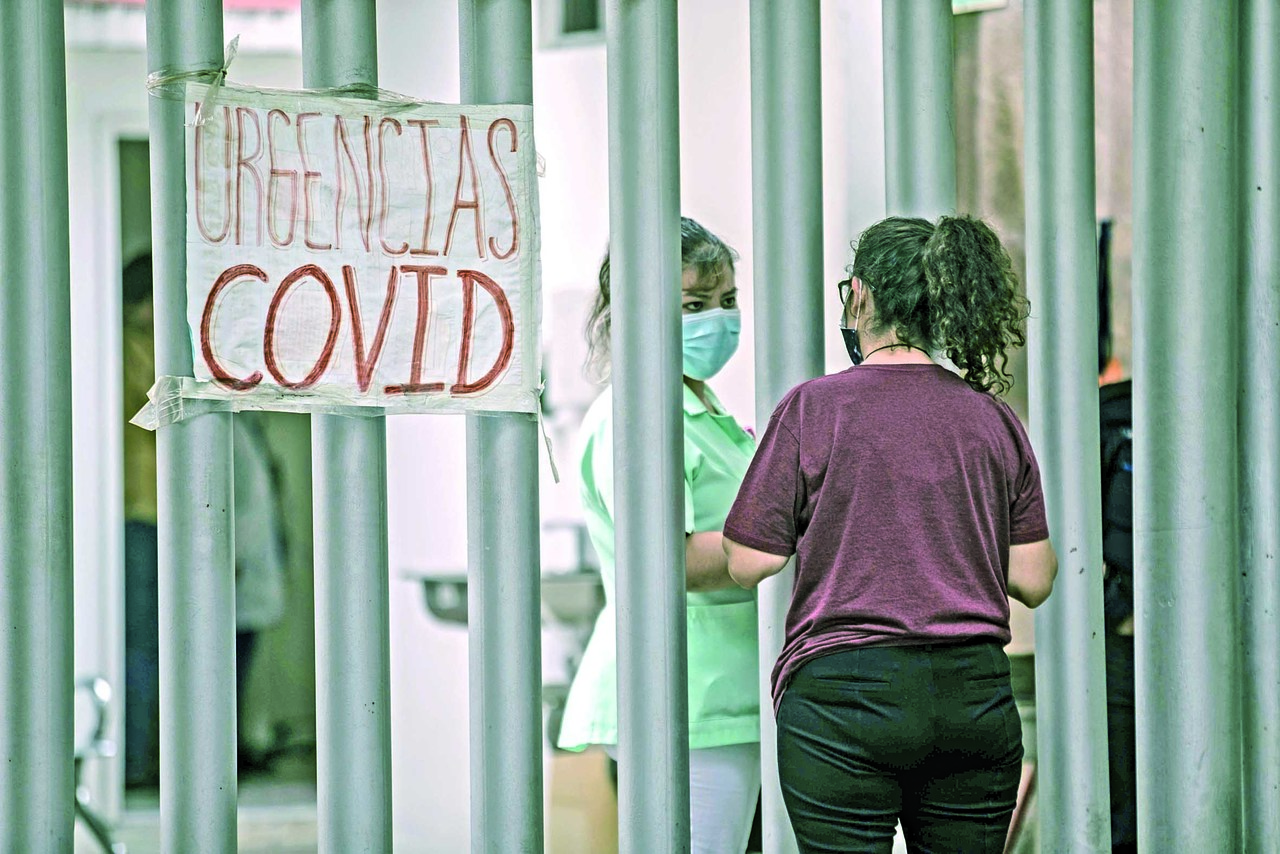 URGENCIAS
COVID